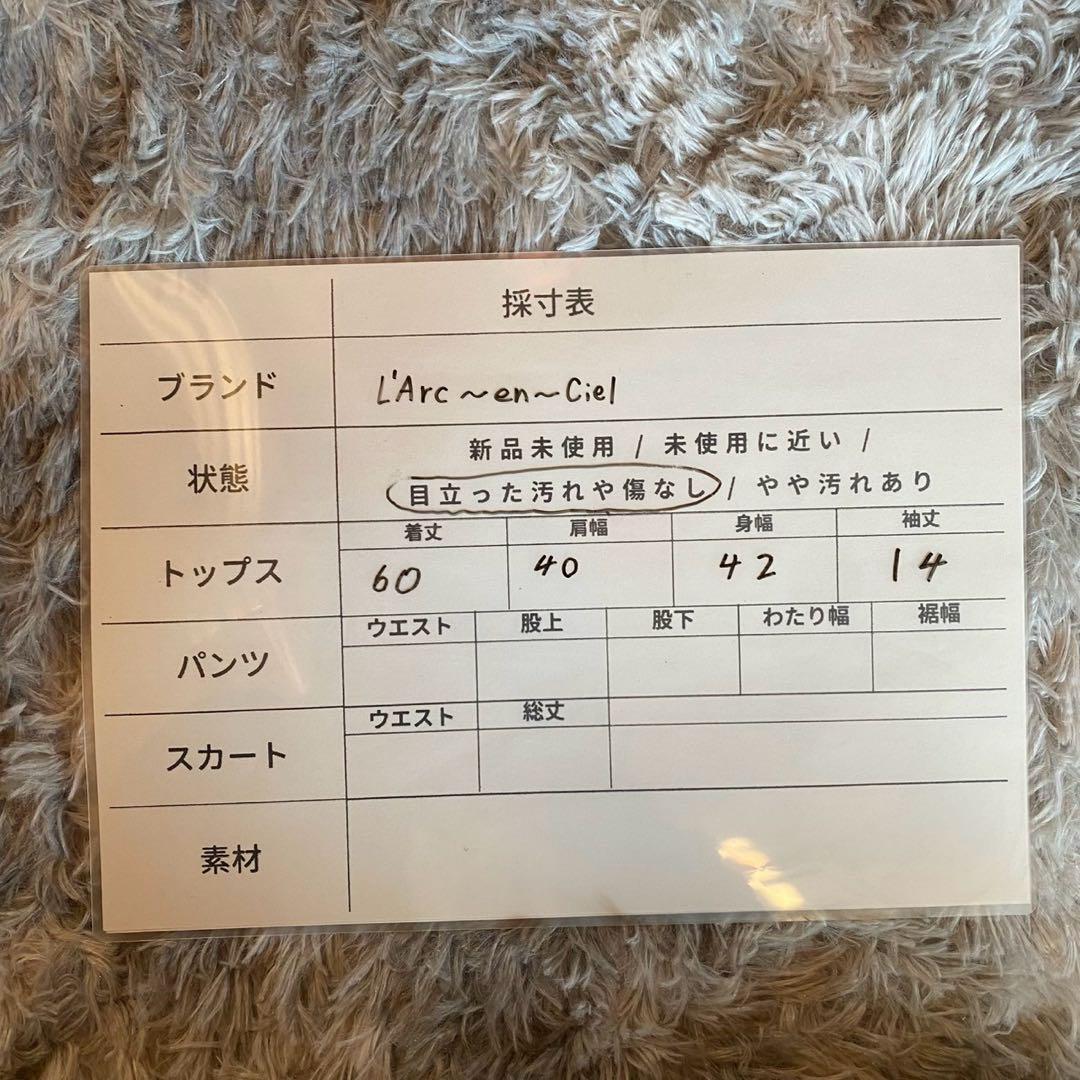 採寸表
ブランド L'Arc～en～Ciel
新品未使用 / 未使用に近い /
状態 目立った汚れや傷なし / やや汚れあり
着丈 肩幅 身幅 袖丈
トップス 60 40 42 14
ウエスト 股上 股下 わたり幅 裾幅
パンツ
ウエスト 総丈
スカート
素材